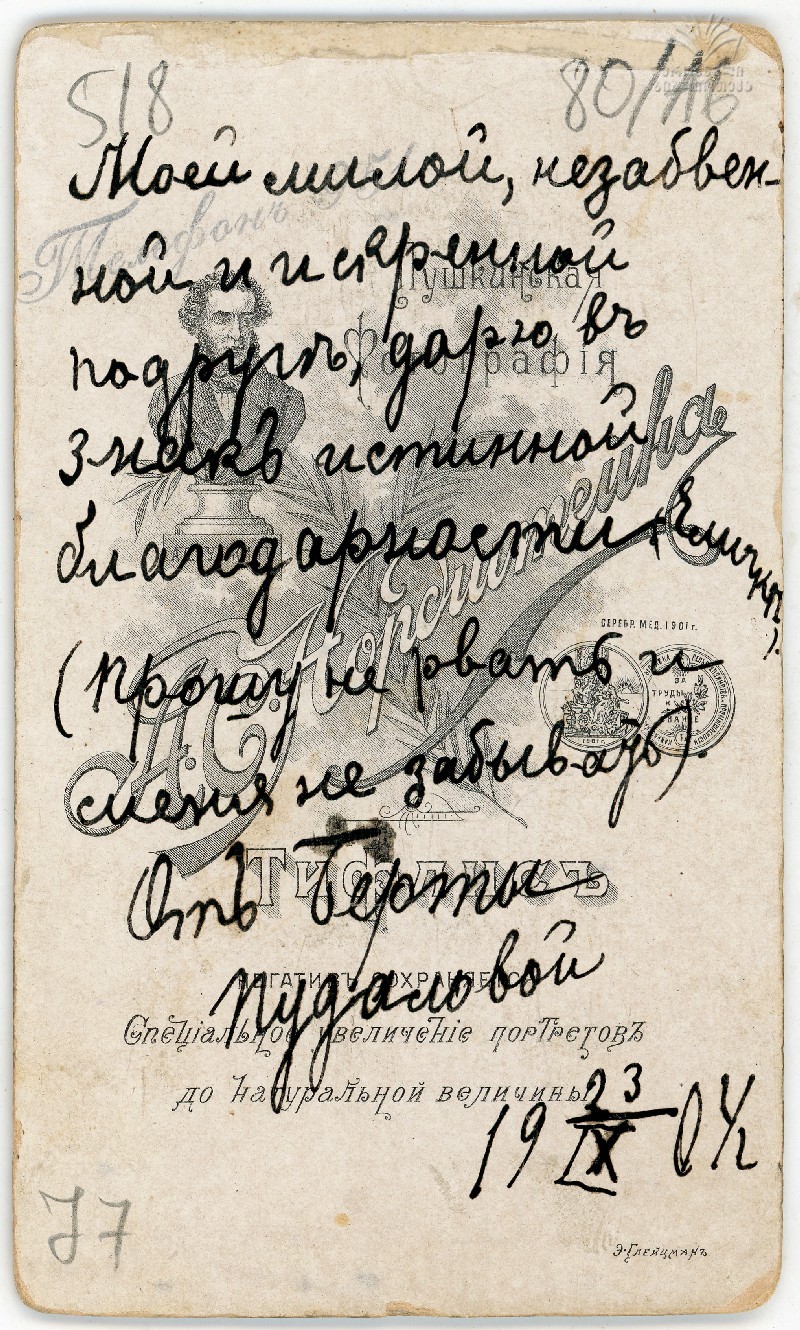 518
80/116
Моей милой, незабвен-
ной и искренной
подругѣ, дарю въ
знакъ истинной
благодарности (Еличкѣ).
(Прошу не рвать и
меня не забывать).
Отъ Берты
Пудаловой
19 23/IX 04 г.
Телефонъ
Пушкинская
Фотографія
А.С. Нордштейна
СЕРЕБР. МЕД. 1901 г.
ЗА
ТРУДЫ
1901 г.
Тифлисъ
НЕГАТИВЪ СОХРАНЯЕТСЯ
Спеціальное увеличеніе портретовъ
до натуральной величины
J7
Э.Глейцманъ